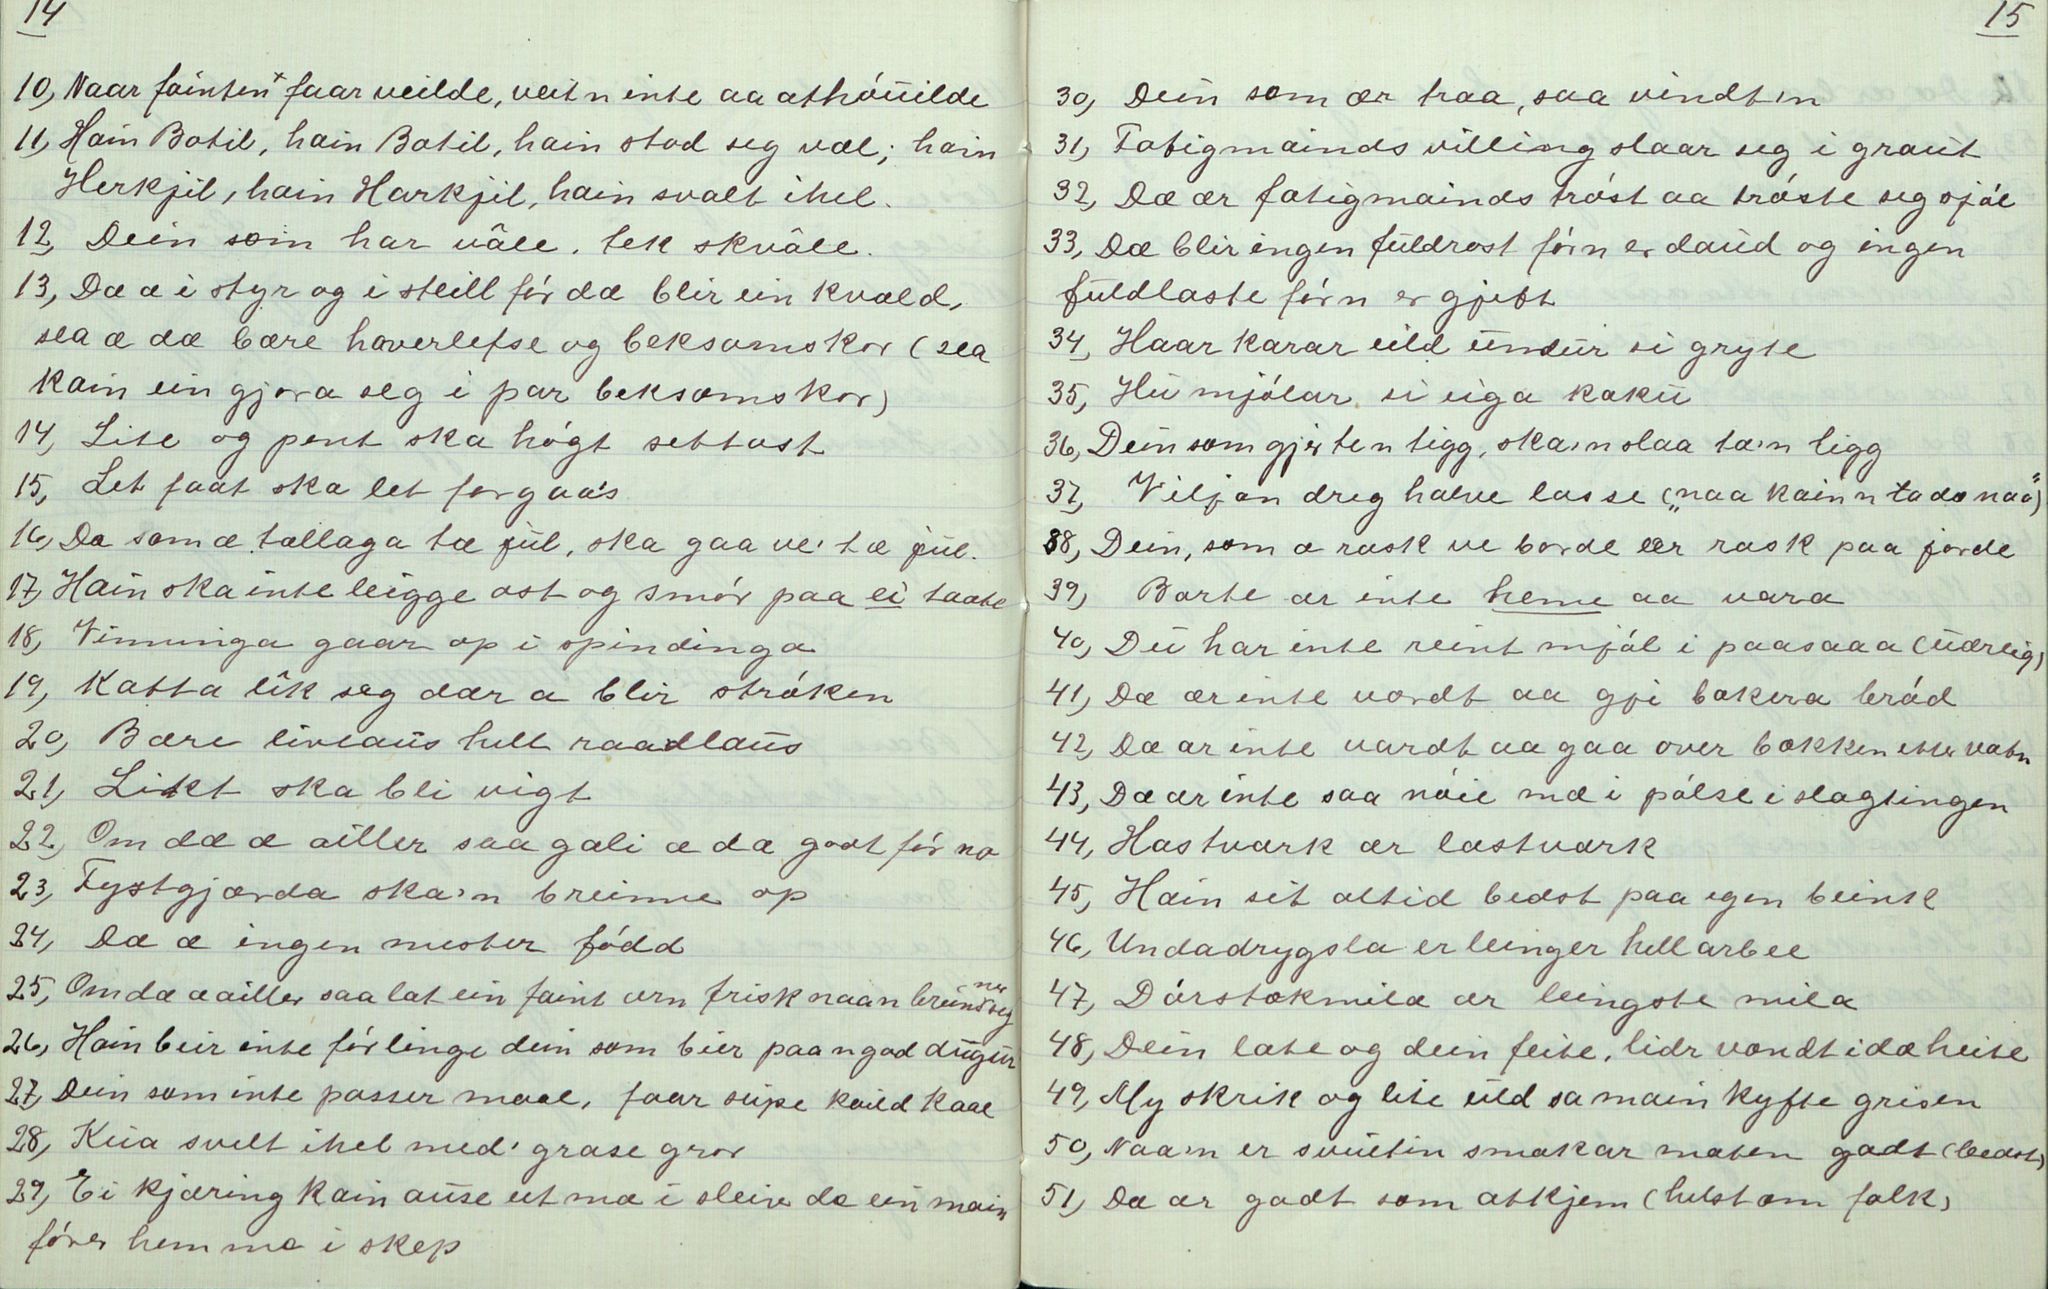 14
10, Naar fáinten x faar veilde, veit n inte aa athóüilde
11, Hain Botil, hain Botil, hain stod seg væl; hain
Herkjil, hain Harkjil, hain svalt ihel.
12, Dein som har vâle, tek skvâle.
13, Da æ i styr og i steill fór dæ blir ein kvæld,
sea æ dæ bære haverlefse og beksomskor (sea
kain ein gjora seg i par beksomskor)
14, Lite og pent ska hógt settast
15, Let faat ska let forgaa's
16, Da som æ tællaga tæ jül, ska gaa ve' tæ jül.
17, Hain ska inte leigge ost og smór paa ei taate
18, Vinninga gaar op i spindinga
19, Katta lîk seg dær a blir stróken
20, Bære livlaüs hell raadlaüs
21, Likt ska bli vigt
22, Om dæ æ ailler saa gali æ dæ godt fór no
23, Tystgjærda ska'n breinne op
24, Dæ æ ingen mester fódd
25, Om dæ æ ailler saa lat ein faint ern frisk naa n breinner seg
26, Hain beir inte fórlinge dein som bier paa n god dügür
27, Dein som inte passer maal, faar süpe kaild kaal
28, Küa svelt ihel med' grase gror
29, Ei kjæring kain aüse ut mæ i sleiv dæ ein main
fórer hem mæ i skep
15
30, Dein som ær traa, saa vindt'n
31, Fatigmainds villing slaar seg i graüt
32, Dæ ær fatigmainds tróst aa tróste seg sjól
33, Dæ blir ingen füldrost fórn er daüd og ingen
füldlaste fórn er gjift
34, Haar karar eild ündür si gryte
35, Hü mjólar si eiga kakü
36, Dein som gjer ten tigg, ska'n slaa ta'n ligg
37, Viljan dreg halve lasse („naa kain n ta do naa")
38, Dein, som æ rask ve borde eær rask paa jorde
39, Borte ær inte heme aa vara
40, Dü har inte reint mjól i paasaaa (üærlig)
41, Dæ ær inte værdt aa gji bakera bród
42, Dæ ær inte værdt aa gaa over bækken etter vatn
43, Dæ ær inte saa nóie mæ i pólse i slagtingen
44, Hastværk ær lastværk
45, Hain sit altid bedst paa egen beink
46, Undadrygsla er leinger hell arbee
47, Dórstokmila ær leingste mila
48, Dein late og dein feite, lidr vondt i dæ heite
49, My skrik og lite üld sa main kyfte grisen
50, Naa'n er svültin smakar maten godt (bedst)
51, Dæ ær godt som atkjem (helst om folk)